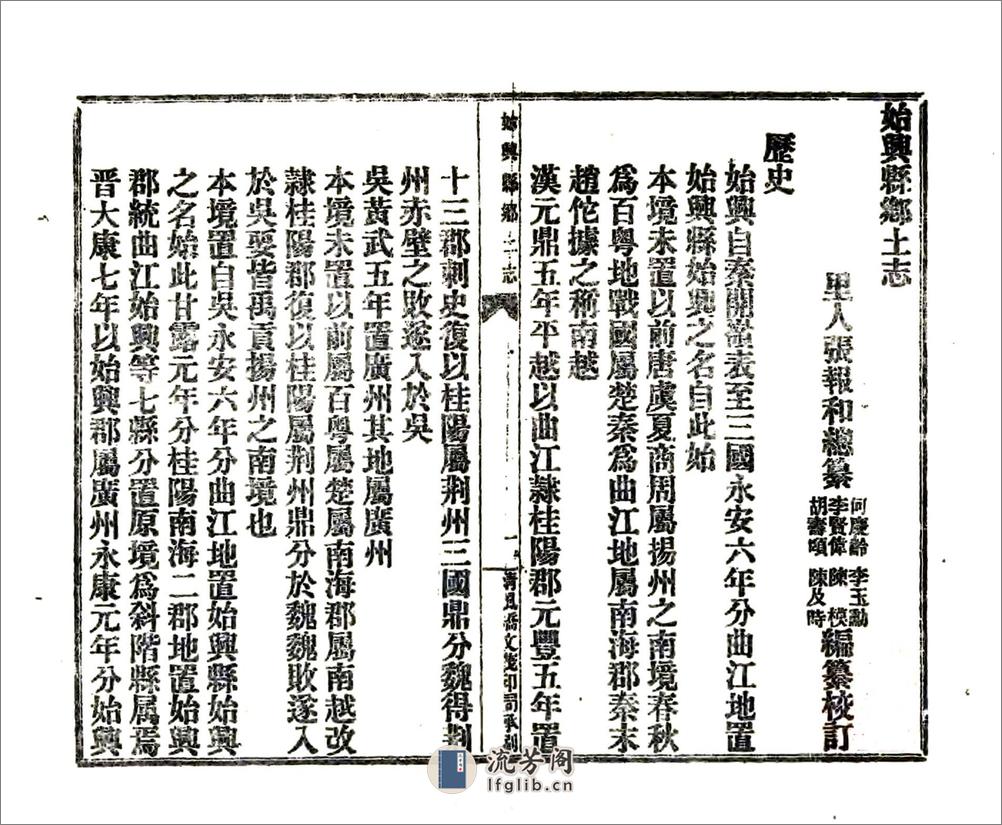 始興縣鄉土志
里人張報和總纂
何慶齡 李玉勳
李賢偉 陳 模
胡審頌 陳及時
編纂校訂
歷史
始興自秦開嶺表至三國永安六年分曲江地置
始興縣始興之名自此始
本境未置以前唐虞夏商周屬揚州之南境春秋
為百粵地戰國屬楚秦為曲江地屬南海郡秦末
趙佗據之稱南越
漢元鼎五年平越以曲江隸桂陽郡元豐五年置
始興縣鄉土志
一
清風橋文茂印局承刊
十三郡刺史復以桂陽屬荆州三國鼎分魏得荆
州赤壁之敗遂入於吳
吳黃武五年置廣州其地屬廣州
本境未置以前屬百粵屬楚屬南海郡屬南越改
隸桂陽郡復以桂陽屬荆州鼎分於魏魏敗遂入
於吳要皆禹貢揚州之南境也
本境置自吳永安六年分曲江地置始興縣始興
之名始此甘露元年分桂陽南海二郡地置始興
郡統曲江始興等七縣分置原境為斜階縣屬焉
晉大康七年以始興郡屬廣州永康元年分始興
流芳阁
lfglib.cn